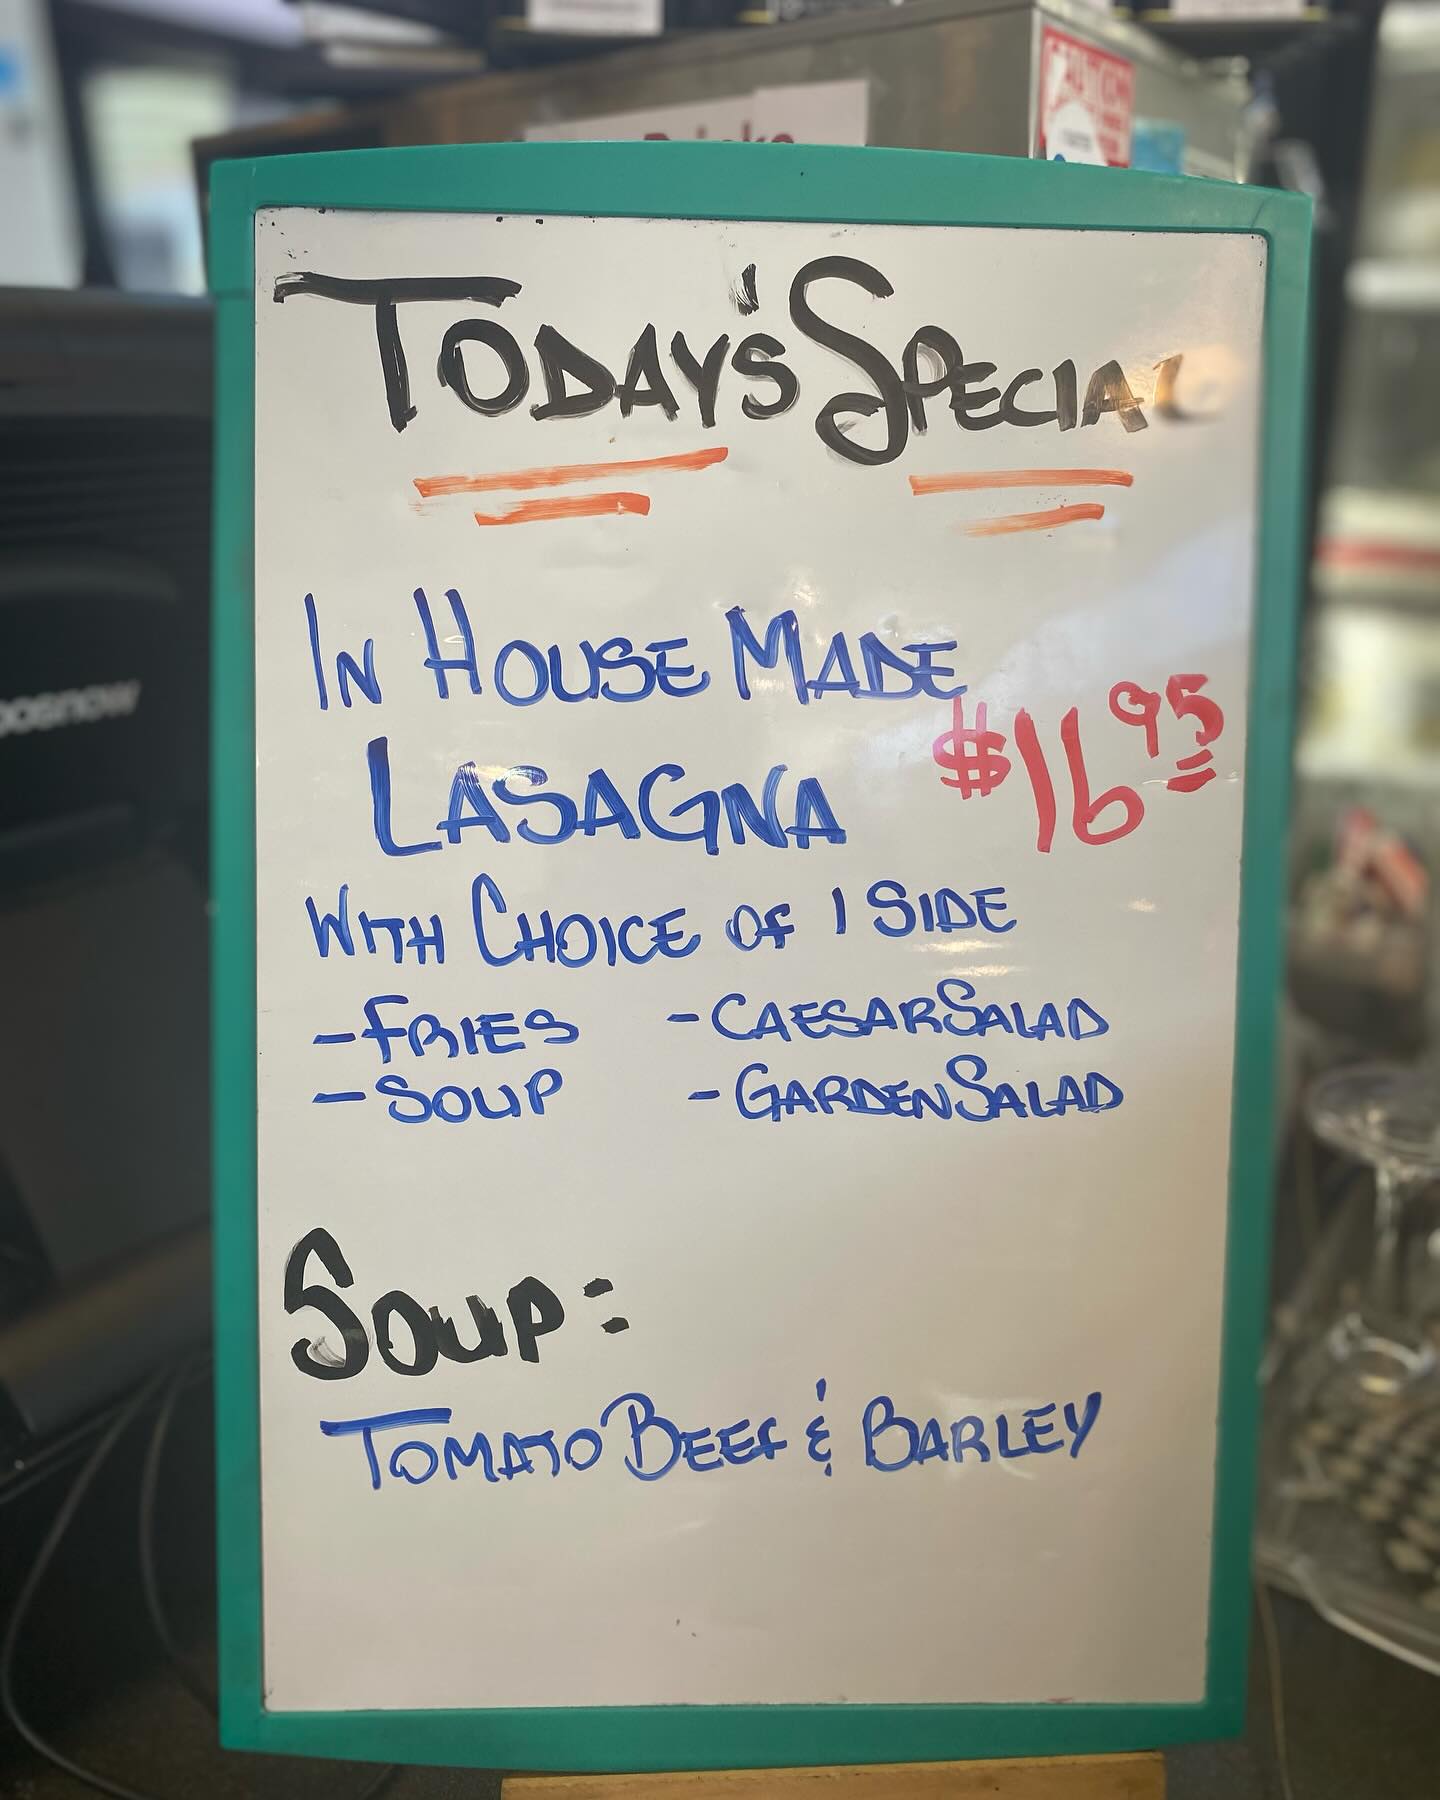 Drinks
TODAY'S SPECIAL
IN HOUSE MADE
LASAGNA $16.95
WITH CHOICE OF 1 SIDE
- FRIES - CAESAR SALAD
- SOUP - GARDEN SALAD
SOUP:
TOMATO BEEF & BARLEY